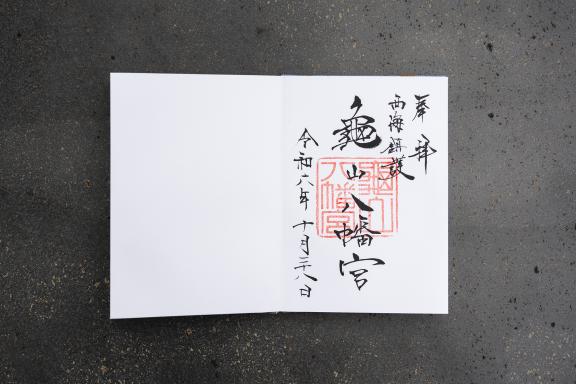 奉拝
西海鎮護
龜山八幡宮
令和六年十月二十八日
龜山八幡宮